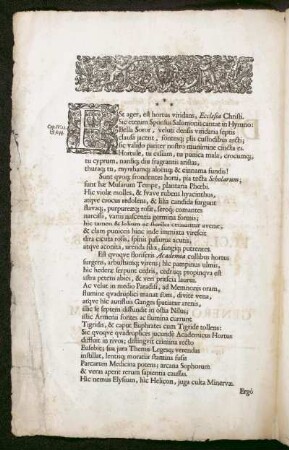 Se ager, est hortus viridans, Ecclesia Christi.
Sic etenim Spiritus Salomonis cantat in Hymno:
Bella Soror, veluti densis viridaria septis
clausa jacent, firmisq; piis custodibus arcti;
sic valido pariter nostro munimine cincta es
Hortule, tu casiam, tu punica mala, crocumq;
tu cyprum, nardiq; das fragrantis aristas,
thuraq; tu, myrrhamq; aloenq; & cinnama fundo!
Sunt quoq; frondentes horti, pia tecta Scholarum;
sunt hæ Musarum Tempe, plantaria Phœbi.
Hic violæ molles, & suave rubens hyacinthus,
atque crocus redolens, & lilia candida surgunt
flavaq;, purpureæq; rosæ, seroq; comantes
narcissi, variis nascentia germina formis;
& clam punicei hinc inde immixta vireti
dira cicuta rosis, spinis paliurus acutis,
atque aconita, urenda siti, fungiq; putretes.
Est quoque florifera Academia collibus hortus
surgens, arbustisq; virens; hic pampinus ulmis,
hic hederæ serpunt cedris, cedrisq; propinqua est
ista petens abies, & veri præscia laurus.
Ac velut in medio Paradisi, ad Memnonis oram,
flumine quadruplici manat fons, divite vena,
atque hic auriferas Ganges spatiatur arenas,
ille se septem diffundit in ostia Nilus;
istic Armenia fortes ac flumina currunt
Tigridis, & caput Euphrates cum Tigride tollens:
Sic quoque quadruplices jucunde Academicus Hortus
diffluit in rivos; distinguit crimina recto
Eusebie; sua jura Themis Legesq; verendas
instillat, lentisq; moratur stamina fusis
Parcarum Medicina potens; arcana Sophorum
& vera aperit rerum sapientia caussas.
Hic nemus Elysium, hic Helicon, juga culta Minervæ.
Ergò